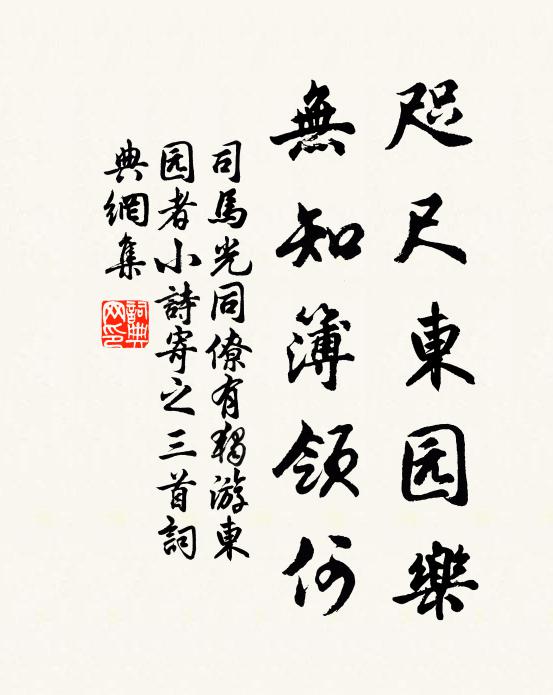 咫尺東园樂
無知簿領何
司馬光同僚有獨游東
园者小詩寄之三首詞
典網集
詞典
网印